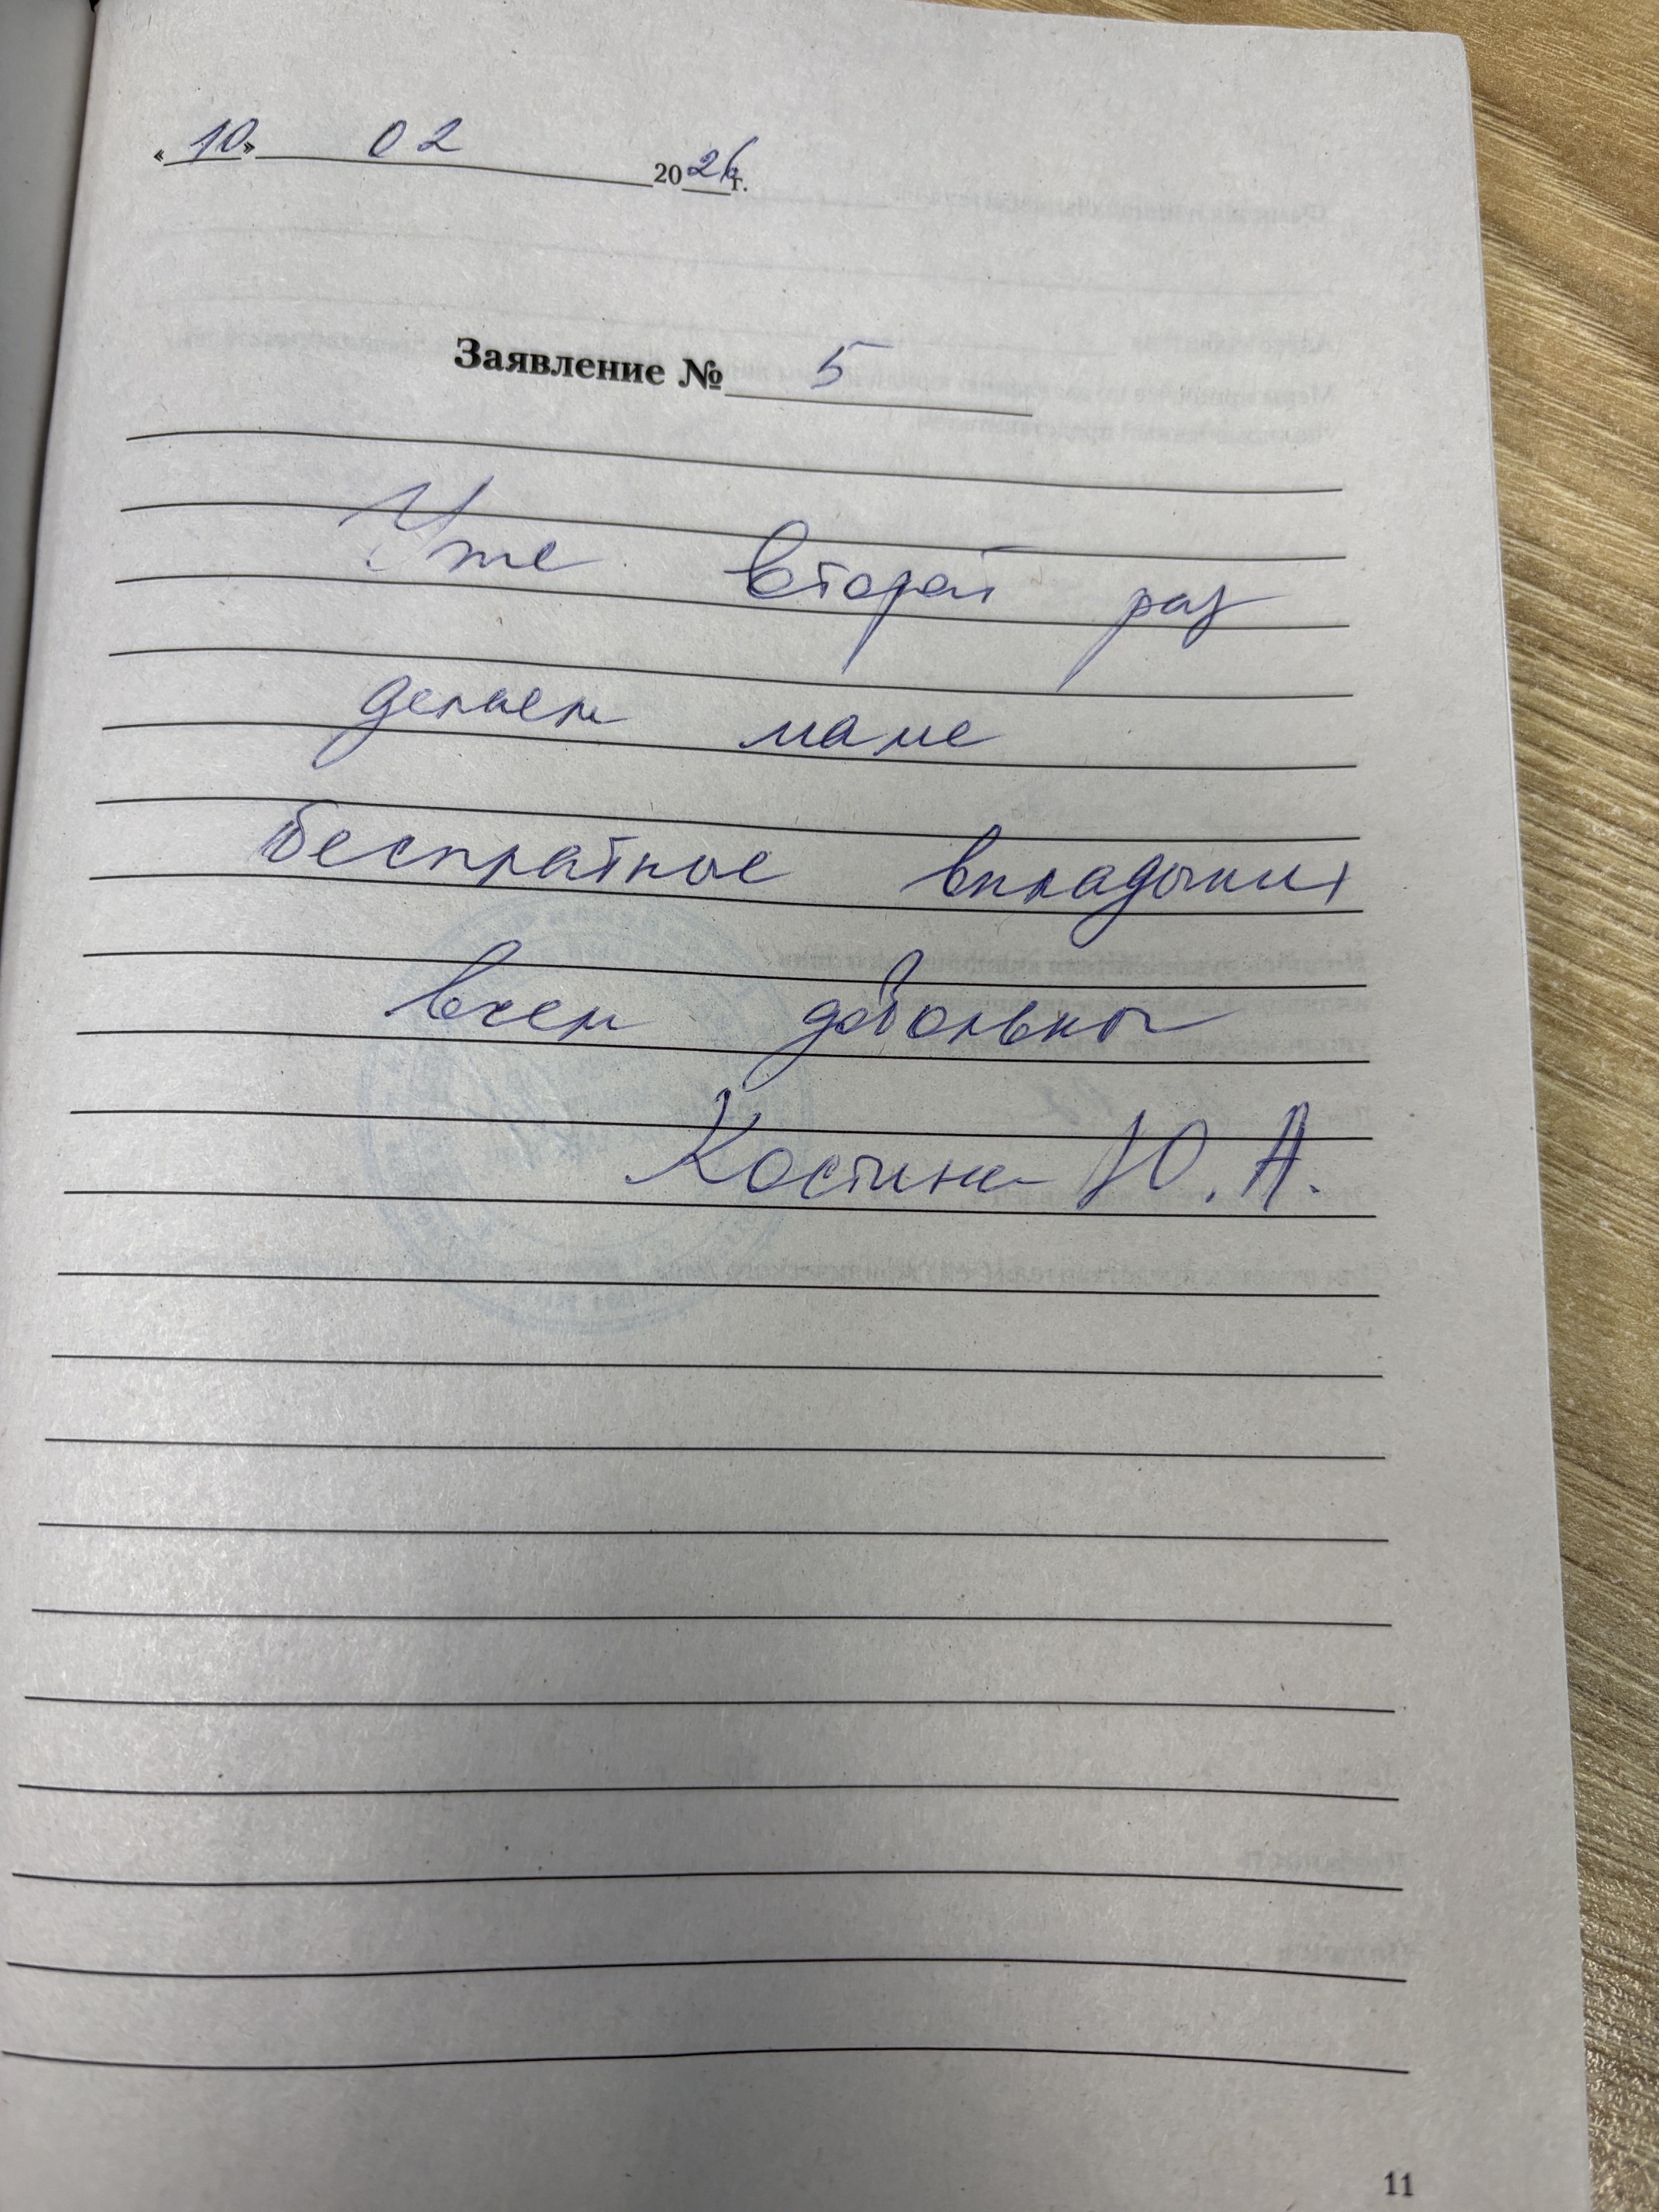 «10» 02 2026 г.
Заявление № 5
Уже второй раз
делаем маме
бесплатное вкладыши
всем довольны
Костина Ю. А.
11